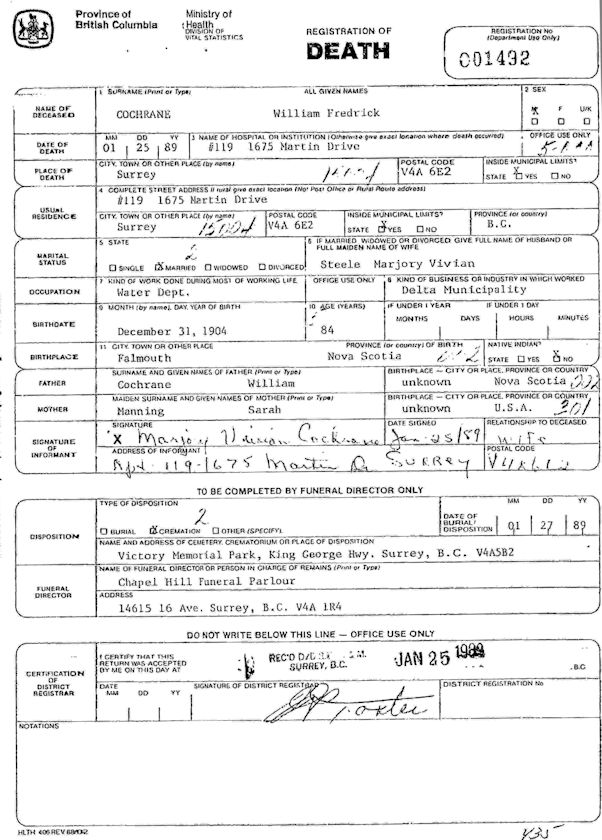 Province of British Columbia
Ministry of Health
DIVISION OF VITAL STATISTICS
REGISTRATION OF
DEATH
REGISTRATION No
(Department Use Only)
001492
NAME OF DECEASED
1 SURNAME (Print or Type) ALL GIVEN NAMES
COCHRANE William Fredrick
2 SEX
M F U/K
DATE OF DEATH
MM DD YY
01 25 89
3 NAME OF HOSPITAL OR INSTITUTION (Otherwise give exact location where death occurred)
#119 1675 Martin Drive
OFFICE USE ONLY
PLACE OF DEATH
CITY, TOWN OR OTHER PLACE (by name)
Surrey
POSTAL CODE
V4A 6E2
INSIDE MUNICIPAL LIMITS?
STATE X YES NO
USUAL RESIDENCE
4 COMPLETE STREET ADDRESS If rural give exact location (Not Post Office or Rural Route address)
#119 1675 Martin Drive
CITY, TOWN OR OTHER PLACE (by name)
Surrey 15004
POSTAL CODE
V4A 6E2
INSIDE MUNICIPAL LIMITS?
STATE X YES NO
PROVINCE (or country)
B.C.
MARITAL STATUS
5 STATE
2
SINGLE X MARRIED WIDOWED DIVORCED
6 IF MARRIED, WIDOWED OR DIVORCED GIVE FULL NAME OF HUSBAND OR FULL MAIDEN NAME OF WIFE
Steele Marjory Vivian
OCCUPATION
7 KIND OF WORK DONE DURING MOST OF WORKING LIFE
Water Dept.
OFFICE USE ONLY
8 KIND OF BUSINESS OR INDUSTRY IN WHICH WORKED
Delta Municipality
BIRTHDATE
9 MONTH (by name), DAY, YEAR OF BIRTH
December 31, 1904
10 AGE (YEARS)
84
IF UNDER 1 YEAR
MONTHS DAYS
IF UNDER 1 DAY
HOURS MINUTES
BIRTHPLACE
11 CITY, TOWN OR OTHER PLACE PROVINCE (or country) OF BIRTH
Falmouth Nova Scotia
NATIVE INDIAN?
STATE YES X NO
FATHER
SURNAME AND GIVEN NAMES OF FATHER (Print or Type)
Cochrane William
BIRTHPLACE — CITY OR PLACE, PROVINCE OR COUNTRY
unknown Nova Scotia
MOTHER
MAIDEN SURNAME AND GIVEN NAMES OF MOTHER (Print or Type)
Manning Sarah
BIRTHPLACE — CITY OR PLACE, PROVINCE OR COUNTRY
unknown U.S.A. 301
SIGNATURE OF INFORMANT
SIGNATURE
X Marjory Vivian Cochrane
DATE SIGNED
Jan 25/89
RELATIONSHIP TO DECEASED
Wife
ADDRESS OF INFORMANT
Apt. 119-1675 Martin Dr SURREY
POSTAL CODE
TO BE COMPLETED BY FUNERAL DIRECTOR ONLY
DISPOSITION
TYPE OF DISPOSITION
2
BURIAL X CREMATION OTHER (SPECIFY)
DATE OF BURIAL/DISPOSITION
MM DD YY
01 27 89
NAME AND ADDRESS OF CEMETERY, CREMATORIUM OR PLACE OF DISPOSITION
Victory Memorial Park, King George Hwy. Surrey, B.C. V4A5B2
FUNERAL DIRECTOR
NAME OF FUNERAL DIRECTOR OR PERSON IN CHARGE OF REMAINS (Print or Type)
Chapel Hill Funeral Parlour
ADDRESS
14615 16 Ave. Surrey, B.C. V4A 1R4
DO NOT WRITE BELOW THIS LINE — OFFICE USE ONLY
CERTIFICATION OF DISTRICT REGISTRAR
I CERTIFY THAT THIS RETURN WAS ACCEPTED BY ME ON THIS DAY AT
REC'D
SURREY, B.C.
JAN 25 1989
, B.C
DATE
MM DD YY
SIGNATURE OF DISTRICT REGISTRAR
DISTRICT REGISTRATION No
NOTATIONS
435